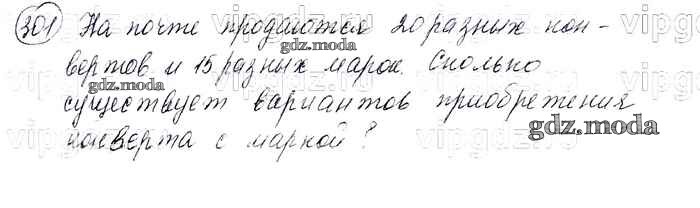 301 На почте продаются 20 разных кон-
вертов и 15 разных марок. Сколько
существует вариантов приобретения
конверта с маркой?
gdz.moda
gdz.moda
gdz.moda
gdz.moda
vipgdz.ru
vipgdz.ru
vipgdz.ru